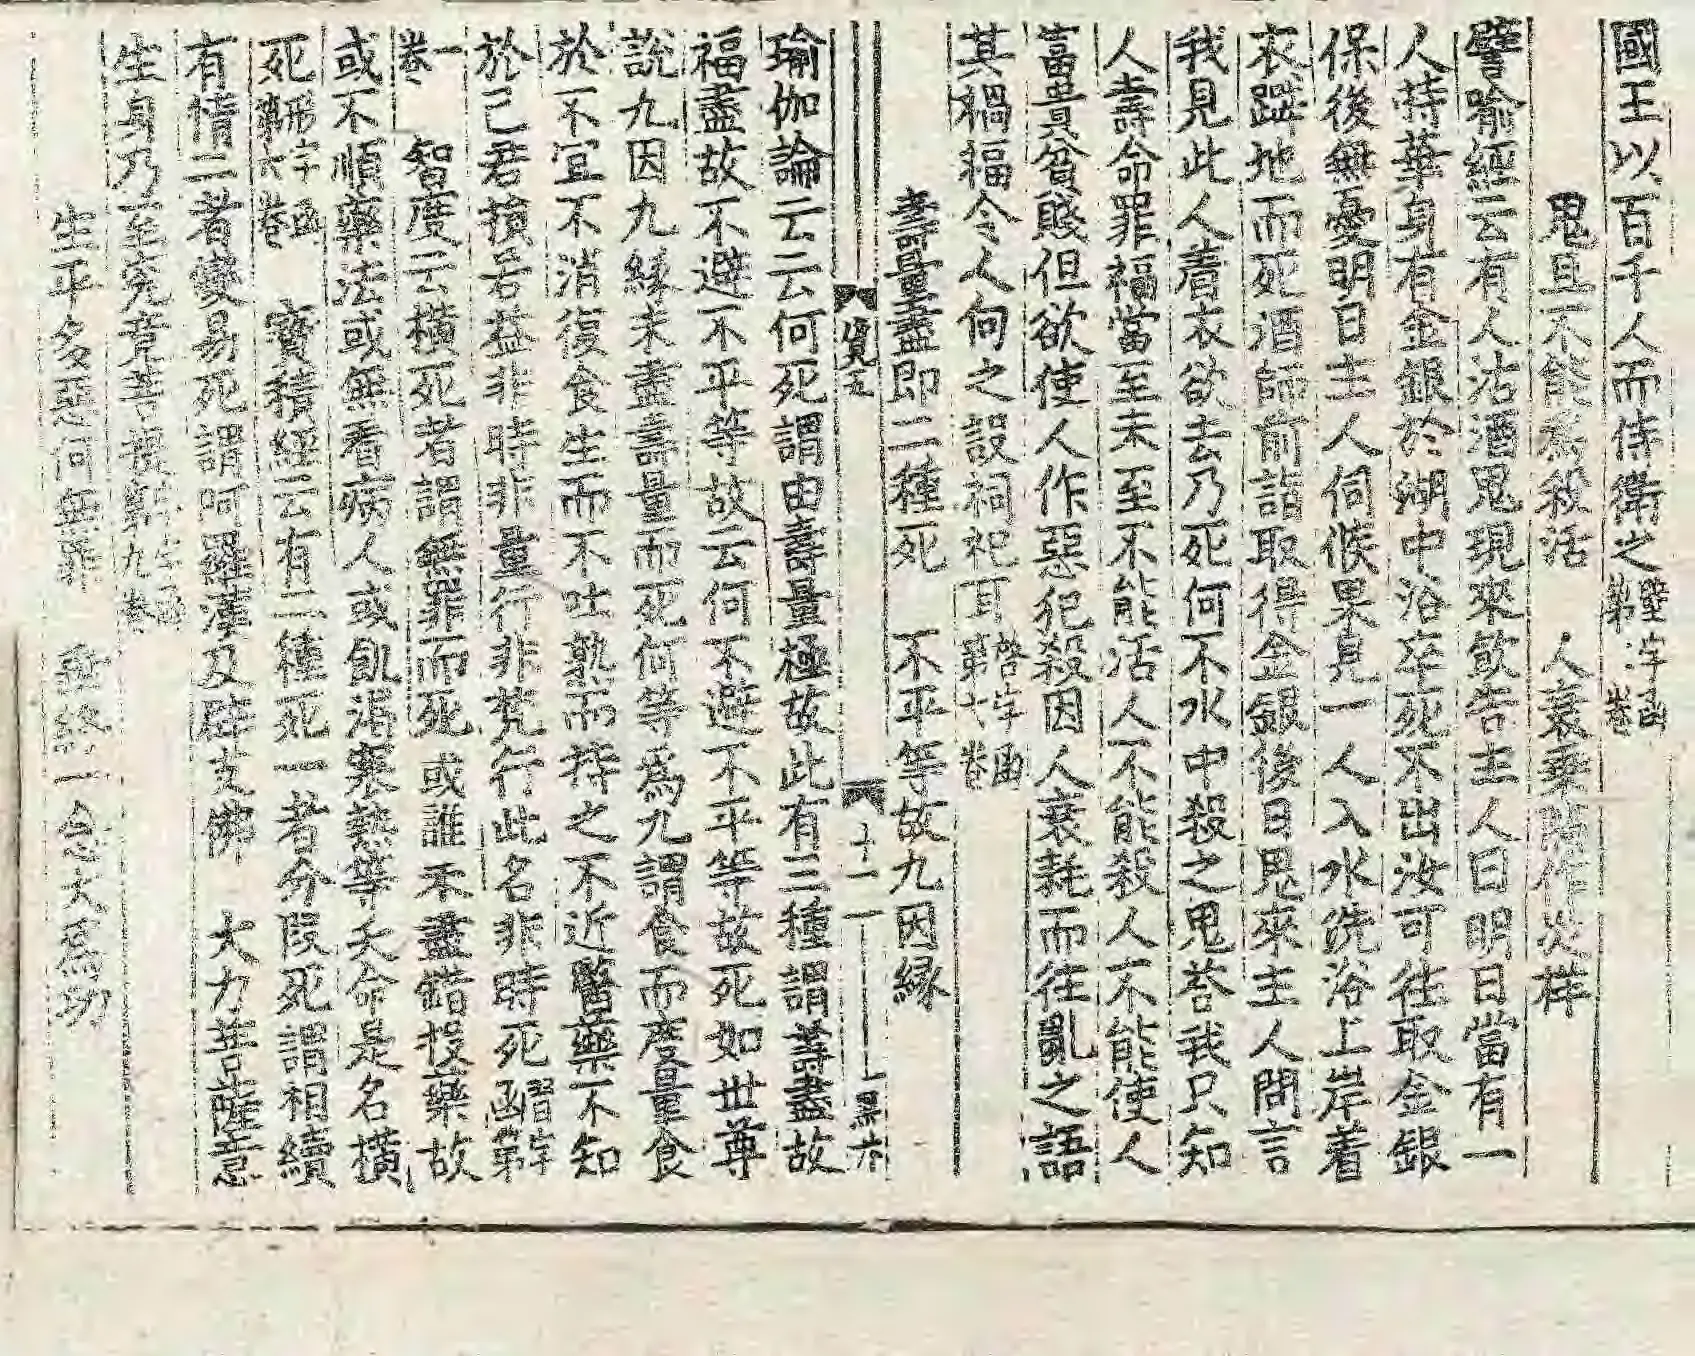 國王以百千人而侍衛之 字函第 卷
鬼且不能爲殺活 人衰乘時作災祥
譬喻經云有人沽酒鬼現來飲告主人曰明日當有一
人持華身有金銀於湖中浴卒死不出汝可往取金銀
保後無憂明日主人伺候果見一人入水洗浴上岸着
衣躃地而死酒師前詣取得金銀後日鬼來主人問言
我見此人着衣欲去乃死何不水中殺之鬼荅我只知
人壽命罪福當至未至不能活人不能殺人不能使人
富貴貧賤但欲使人作惡犯殺因人衰耗而往亂之語
其禍福令人向之設祠祀耳 字函第十卷
壽量盡即二種死 不平等故九因緣
寶五 十一 
瑜伽論云云何死謂由壽量極故此有三種謂壽盡故
福盡故不避不平等故云何不避不平等故死如世尊
說九因九緣未盡壽量而死何等爲九謂食而度量食
於不宜不消復食生而不吐熟而持之不近醫藥不知
於己若損若益非時非量行非梵行此名非時死 字函第
一卷 智度云橫死者謂無罪而死或誰不盡錯投藥故
或不順藥法或無看病人或飢渴寒熱等夭命是名橫
死 形字函第六卷 寶積經云有二種死一者分段死謂相續
有情二者變易死謂阿羅漢及辟支佛 大力菩薩意
生身乃至究竟菩提 字函第九卷
生平多惡何無罪 臨終一念大爲功